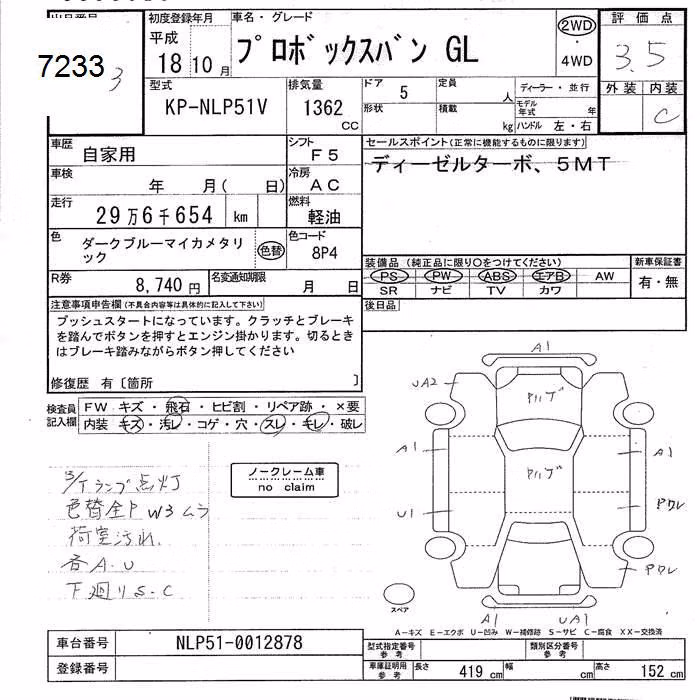 7233
3
初度登録年月
平成
18 10 月
車名・グレード
プロボックスバン GL
2WD
・
4WD
評価点
3.5
外装 内装
C
型式
KP-NLP51V
排気量
1362
CC
ドア
5
定員
人
形状
積載
kg
ディーラー・並行
モデル年式 年
ハンドル 左・右
車歴
自家用
シフト
F5
セールスポイント(正常に機能するものに限ります)
ディーゼルターボ、5MT
車検
年 月( 日)
冷房
AC
走行
29万6千654 km
燃料
軽油
色
ダークブルーマイカメタリック
色替
色コード
8P4
装備品(純正品に限り○をつけてください)
PS PW ABS エアB AW
SR ナビ TV カワ
新車保証書
有・無
R券
8,740 円
名変通知期限
月 日
後日品
注意事項申告欄(不具合内容等は具体的に記入して下さい)
プッシュスタートになっています。クラッチとブレーキ
を踏んでボタンを押すとエンジン掛かります。切るとき
はブレーキ踏みながらボタン押してください
修復歴 有〔箇所 〕
検査員記入欄
FW キズ・飛石・ヒビ割・リペア跡・×要
内装 キズ・汚レ・コゲ・穴・スレ・キレ・破レ
ランプ点灯
色替全P W3 ムラ
荷室汚れ
各A.U
下廻りS.C
ノークレーム車
no claim
A1
UA2
A1
U1
A1
Pワレ
Pワレ
A1
UA1
スペア
A-キズ E-エクボ U-凹み W-補修跡 S-サビ C-腐食 XX-交換済
車台番号
NLP51-0012878
登録番号
型式指定番号
参考
類別区分番号
参考
車庫証明用
参考
長さ
419 cm
幅
cm
高さ
152 cm